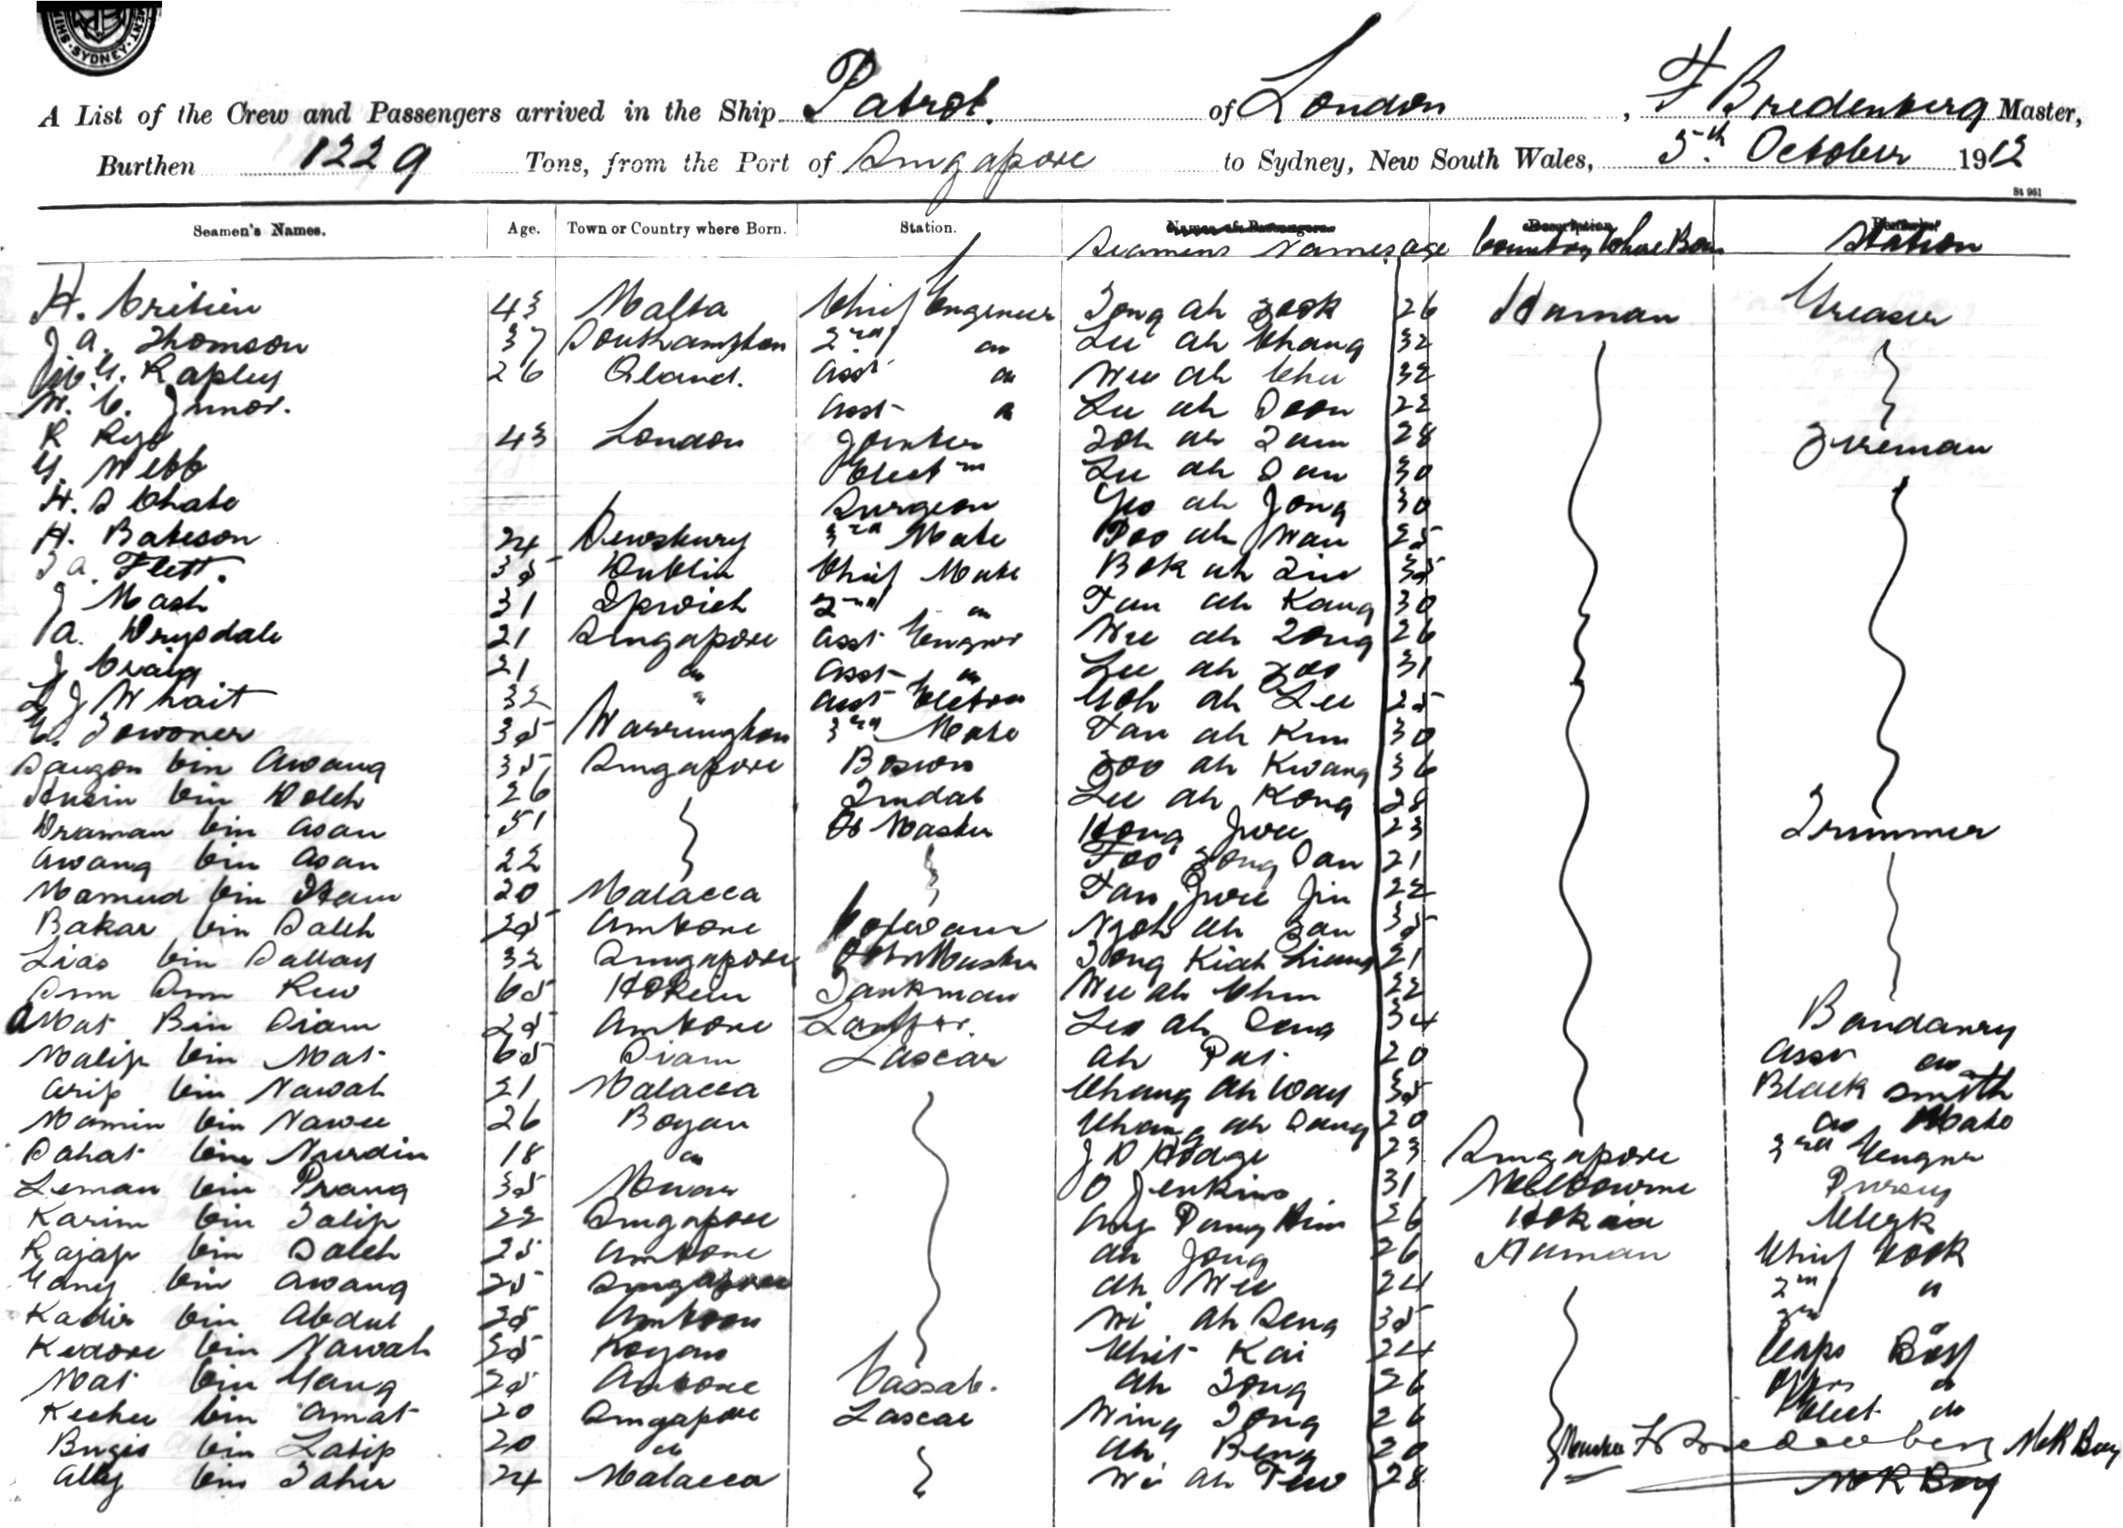 SYDNEY
A List of the Crew and Passengers arrived in the Ship Patrol. of London, F Bredenberg Master,
Burthen 1229 Tons, from the Port of Singapore to Sydney, New South Wales, 5th October 1912
St 961
Seamen's Names. Age. Town or Country where Born. Station. Names of Passengers Description
Seamens Names age Country Where Born Station
H. Critien 43 Malta Chief Engineer Tong ah 26 Hainan Greaser
J A. Thomson 37 Southampton 2nd do Lee ah Chang 32
Rapley 26 asst do Wee ah Chu 32
W. C. Junor. asst do Lee ah Soon 22
R 43 London Joinker Toh ah Tam 28 Fireman
G. Webb Electn Lee ah San 30
H. S Chate Surgeon Yeo ah Jong 30
H. Bateson 24 Dewsbury 3rd Mate ah Wan 25
Flett. 35 Dublin Chief Mate Bok ah 35
J Mash 31 Ipswich 2nd do Tan ah Kang 30
A. Drysdale 21 Singapore asst Engnr Wee ah Tong 26
J Craig 21 do asst do Lee ah 31
L J Whait 32 " asst Goh ah Lee 25
Towoner 35 Warrington 3rd Mate Tan ah Kim 30
bin Awang 35 Singapore Foo ah Kwang 36
Husin bin Doleh 26 Tindal Lee ah Kong 28
Draman bin Asan 51 Qr Master Hong Jwee 23 Trimmer
Awang bin Asan 22 Foo Tong San 21
Mamud bin Itam 20 Malacca Tan Jwee Jin 22
Bakar bin Saleh 25 Ambone Ngoh ah 35
Lias bin 32 Singapore Tong Kiat 21
Kew 65 Hokein Tankman Wee ah Chin 22
Mat Bin Siam 25 Ambone Leo ah Seng 34 Bandanry
Malip bin Mat 65 Siam Lascar ah Pat 20 Asst do
Arip bin Nawah 21 Malacca Chang ah Way 35 Black smith
Mamin bin Nawee 26 Boyan Chang ah Sang 20 do Mate
Sahat bin Nurdin 18 do J D Hodge 23 Singapore 3rd Engnr
Leman bin Prang 35 O Jenkins 31 Melbourne
Karim bin Talip 22 Singapore 26 Clerk
Rajap bin Saleh 25 Ambone ah Jong 26 Hainan Chief Cook
bin Awang 25 Singapore ah Wee 24 2nd "
Kadir bin Abdul 25 ah Seng 35
Kedore bin Nawah 25 Chit Kai 24 Engs Boy
Mat bin Yang 25 Ambone Cassab. ah Tong 26 do
bin Amat 20 Singapore Lascar Wing Tong 26 Elect do
Bugis bin Latip 20 do ah Beng 20 F Bredenberg
Ally bin Tahir 24 Malacca ah 28